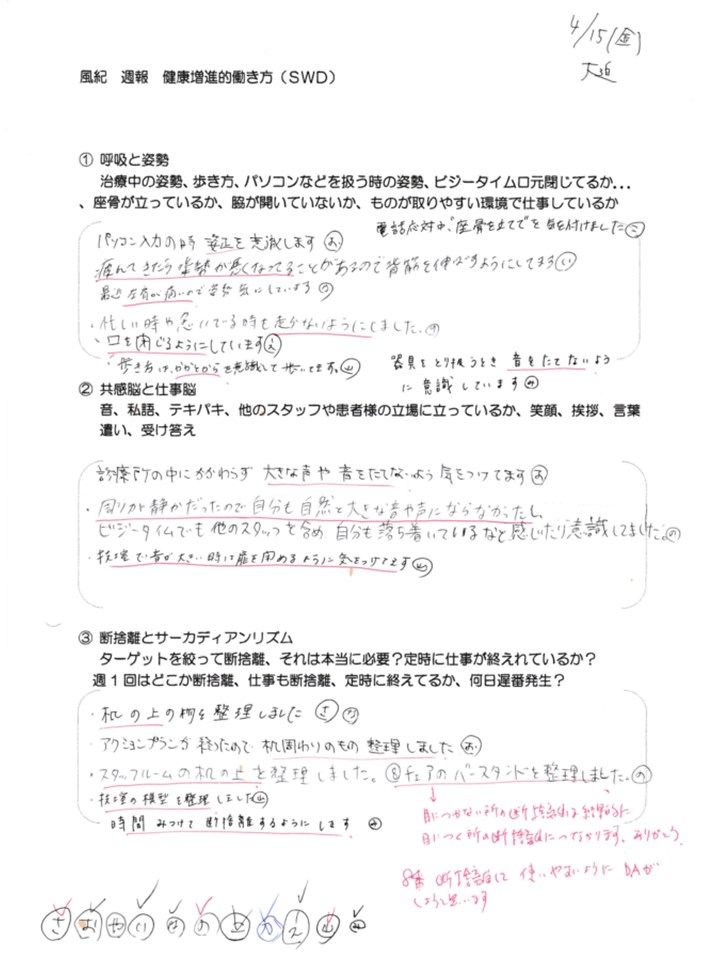 4/15(金)
大迫
風紀 週報 健康増進的働き方(SWD)
① 呼吸と姿勢
治療中の姿勢、歩き方、パソコンなどを扱う時の姿勢、ビジータイム口元閉じてるか...
、座骨が立っているか、脇が開いていないか、ものが取りやすい環境で仕事しているか
電話応対中、座骨を立てるを気を付けました㋙
パソコン入力の時 姿正を意識します ㋔
疲れてきたら姿勢が悪くなってることがあるので背筋を伸ばすようにしてます ㋑
最近 左肩が痛いので姿勢 気にしています
・忙しい時や急いでる時も走らないようにしました。㋨
・口を閉じるようにしています
・歩き方は、かかとからを意識して歩いてます。
器具をとり扱うとき 音をたてないよう
に意識しています
② 共感脳と仕事脳
音、私語、テキパキ、他のスタッフや患者様の立場に立っているか、笑顔、挨拶、言葉
遣い、受け答え
診療所の中にかかわらず 大きな声や音をたてないよう気をつけてます
・周りが静かだったので自分も自然と大きな音や声にならなかったし、
ビジータイムでも他のスタッフを含め自分も落ち着いているなと感じたり意識してました。㋨
・技工室で音が大きい時は扉を閉めるように気をつけてます
③ 断捨離とサーカディアンリズム
ターゲットを絞って断捨離、それは本当に必要?定時に仕事が終えれているか?
週1回はどこか断捨離、仕事も断捨離、定時に終えてるか、何日遅番発生?
・机の上の棚を整理しました ㋚
・アクションプランが終ったので 机周わりのもの 整理しました ㋔
・スタッフルームの机の上を整理しました。⑧チェアのバースタンドを整理しました。㋨
・技工室の模型を整理しました
時間みつけて断捨離するようにします
目につかない所の断捨離は結果的に
目につく所の断捨離につながります。ありがとう
8番 断捨離して 使いやすいように DAが
しようと思います
さ お や い な の